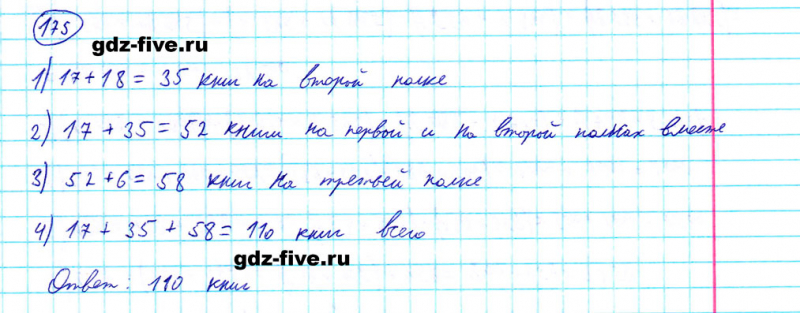 175
gdz-five.ru
1) 17+18 = 35 книг на второй полке
2) 17 + 35 = 52 книги на первой и на второй полках вместе
3) 52+6 = 58 книг на третьей полке
4) 17 + 35 + 58 = 110 книг всего
gdz-five.ru
Ответ: 110 книг